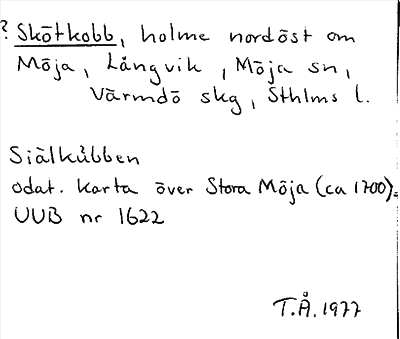 ? Skötkobb, holme nordöst om
Möja, Långvik, Möja sn,
Värmdö skg, Sthlms l.
Siälkübben
odat. karta över Stora Möja (ca 1700).
UUB nr 1622
T.Å. 1977